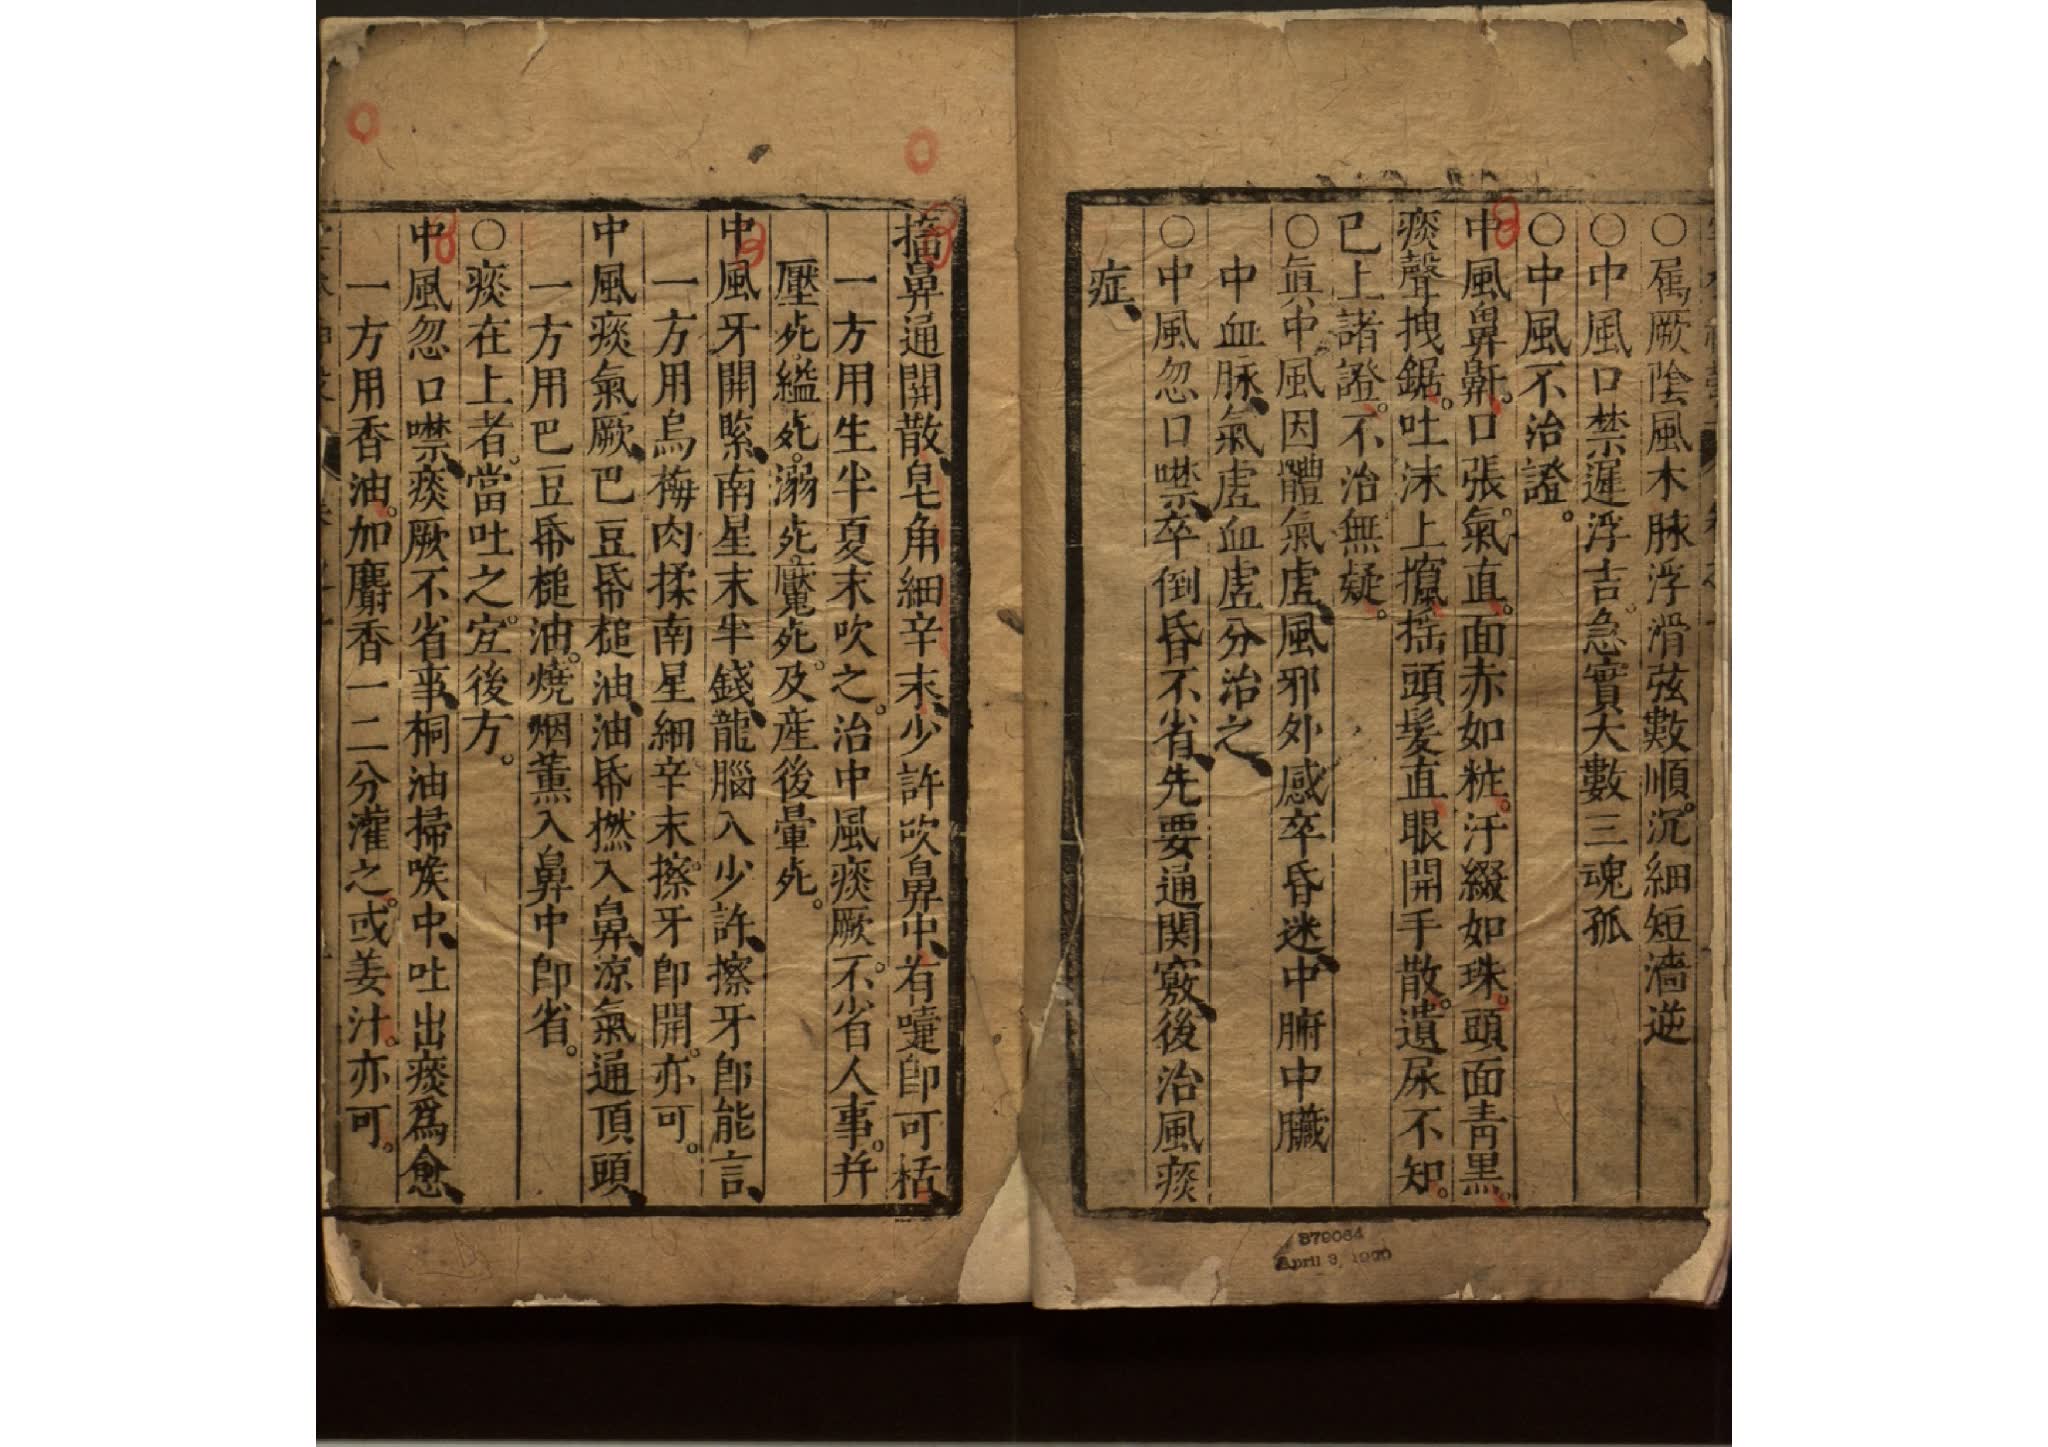 ○屬厥陰風木脉浮滑弦數順。沉細短濇逆
○中風口禁遲浮吉。急實大數三魂孤
○中風不治證。
中風鼻鼾。口張。氣直。面赤如粧。汗綴如珠。頭面青黑。
痰聲拽鋸。吐沫上攛。揺頭髮直眼開手散。遺尿不知。
已上諸證。不治無疑。
○眞中風因體氣虛、風邪外感卒昏迷、中腑中臟
中血脉、氣虛血虛分治之、
○中風忽口噤、卒倒昏不省、先要通関竅、後治風痰
症、
搐鼻通開散、皂角細辛末、少許吹鼻中、有嚏即可栝、
一方用生半夏末吹之。治中風痰厥。不省人事。并
壓死。縊死。溺死。魘死。及産後暈死。
中風牙関緊、南星末半錢、龍腦入少許、擦牙即能言、
一方用烏梅肉揉南星細辛末。擦牙即開。亦可。
中風痰氣厥、巴豆帋槌油、油帋撚入鼻、凉氣通頂頭、
一方用巴豆帋槌油。燒烟薰入鼻中即省。
○痰在上者。當吐之。宜後方。
中風忽口噤、痰厥不省事、桐油掃喉中、吐出痰爲愈、
一方用香油。加麝香一二分灌之。或姜汁。亦可。
B79064
April 3, 1900